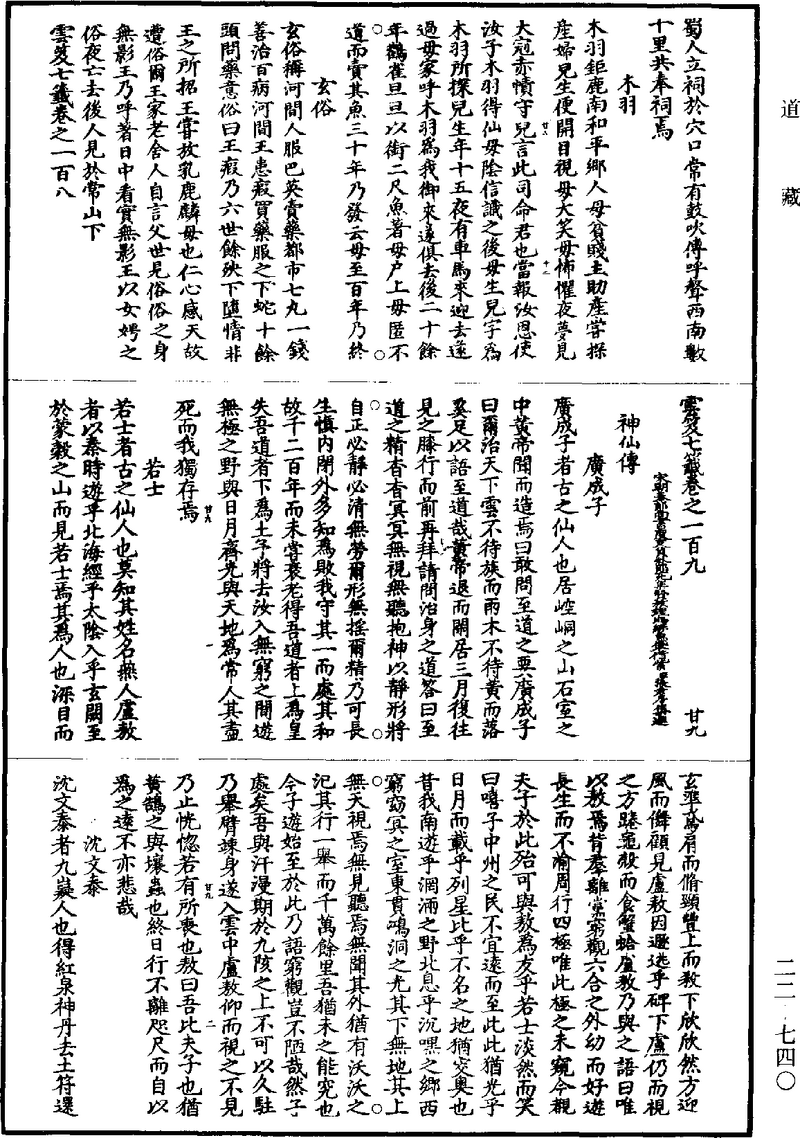 道藏
蜀人立祠於穴口常有鼓吹傳呼聲西南數
十里共奉祠焉
木羽
木羽鉅鹿南和平鄉人母貧賤主助產嘗探
產婦兒生便開目視母大笑母怖懼夜夢見
大冠赤幘守兒言此司命君也當報汝恩使
汝子木羽得仙母陰信識之後母生兒字為
木羽所探兒生年十五夜有車馬來迎去遂
過母家呼木羽為我御來遂俱去後二十餘
年鸛雀旦旦以銜二尺魚著母戶上母匿不
道而賣其魚三十年乃發云母至百年乃終
玄俗
玄俗稱河間人服巴英賣藥都市七丸一錢
善治百病河間王患瘕買藥服之下蛇十餘
頭問藥意俗曰王瘕乃六世餘殃下墮情非
王之所招王嘗放乳鹿麟母也仁心感天故
遭俗爾王家老舍人自言父世見俗俗之身
無影王乃呼著日中看實無影王以女娉之
俗夜亡去後人見於常山下
雲笈七籤卷之一百八
雲笈七籤卷之一百九 廿九
神仙傳
廣成子
廣成子者古之仙人也居崆峒之山石室之
中黃帝聞而造焉曰敢問至道之要廣成子
曰爾治天下雲不待族而雨木不待黃而落
奚足以語至道哉黃帝退而閑居三月復往
見之膝行而前再拜請問治身之道答曰至
道之精杳杳冥冥無視無聽抱神以靜形將
自正必靜必清無勞爾形無搖爾精乃可長
生慎內閉外多知為敗我守其一而處其和
故千二百年而未嘗衰老得吾道者上為皇
失吾道者下為土予將去汝入無窮之間遊
無極之野與日月齊光與天地為常人其盡
死而我獨存焉
若士
若士者古之仙人也莫知其姓名燕人盧敖
者以秦時遊乎北海經乎太陰入乎玄闕至
於蒙穀之山而見若士焉其為人也深目而
玄準鳶肩而脩頸豐上而殺下欣欣然方迎
風而儛顧見盧敖因遯逃乎碑下盧仍而視
之方踡龜殼而食蟹蛤盧敖乃與之語曰唯
以敖焉背羣離黨窮觀六合之外幼而好遊
長生而不渝周行四極唯此極之未窺今覩
夫子於此殆可與敖為友乎若士淡然而笑
曰嘻子中州之民不宜遠而至此此猶光乎
日月而載乎列星比乎不名之地猶突奧也
昔我南遊乎㓏㳽之野北息乎沉嘿之鄉西
窮窈冥之室東貫澒洞之光其下無地其上
無天視焉無見聽焉無聞其外猶有沃沃之
汜其行一舉而千萬餘里吾猶未之能究也
今子遊始至於此乃語窮觀豈不陋哉然子
處矣吾與汗漫期於九陔之上不可以久駐
乃舉臂竦身遂入雲中盧敖仰而視之不見
乃止恍惚若有所喪也敖曰吾比夫子也猶
黃鵠之與壤蟲也終日行不離咫尺而自以
為之遠不亦悲哉
沈文泰
沈文泰者九嶷人也得紅泉神丹去土符還
二二·七四〇